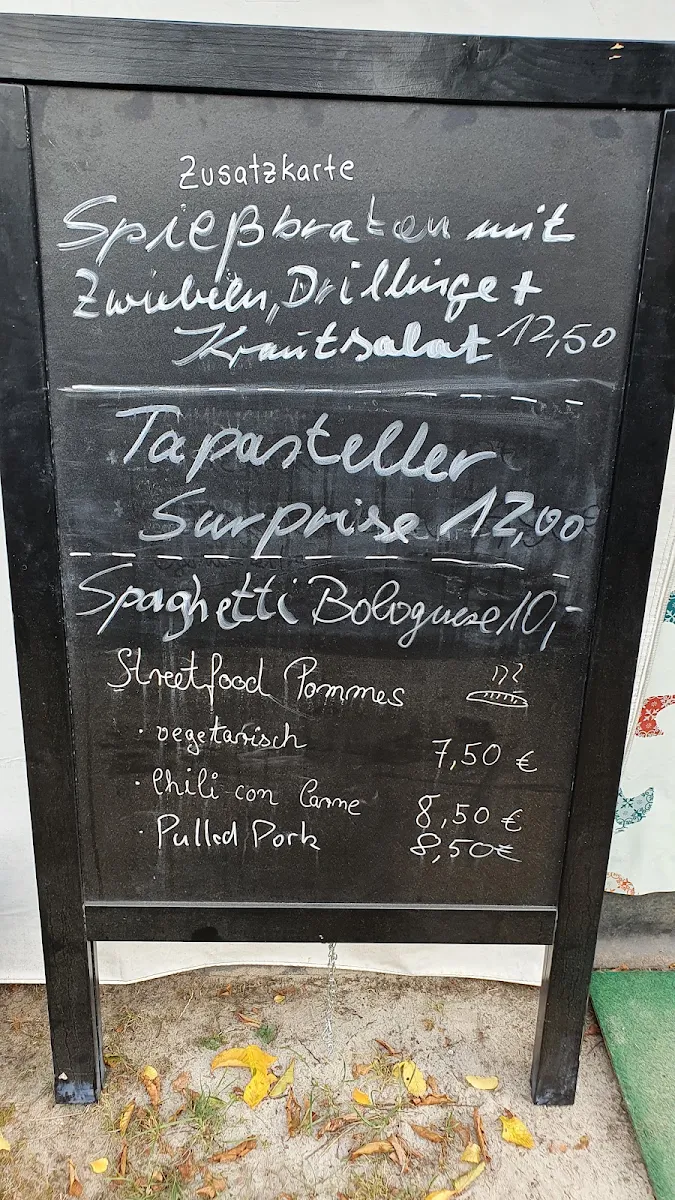 Zusatzkarte
Spießbraten mit
Zwiebeln, Drillinge +
Krautsalat 12,50
Tapasteller
Surprise 12,00
Spaghetti Bolognese 10,-
Streetfood Pommes
· vegetarisch 7,50 €
· Chili con Carne 8,50 €
· Pulled Pork 8,50€